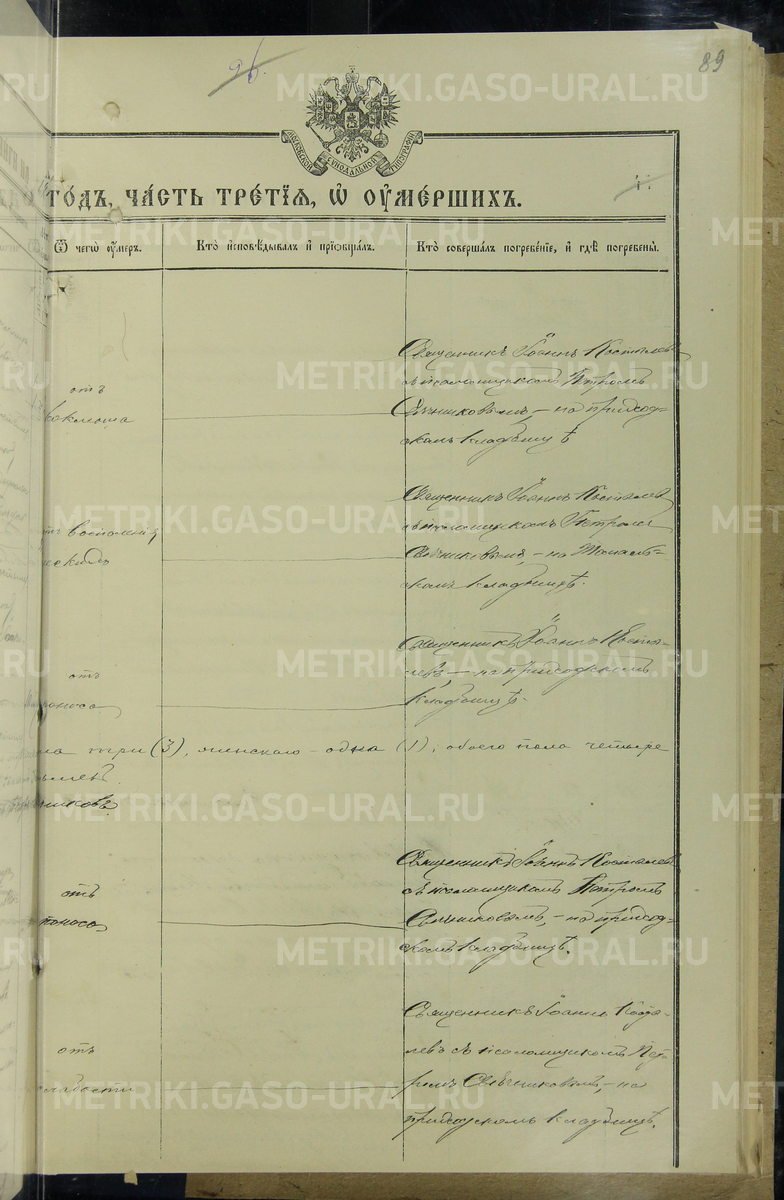 96.
89
МОСКОВСКОЙ СѴНОДАЛЬНОЙ ТИПОГРАФІИ
го́дъ, ча́сть тре́тїѧ, ѽ оу҆ме́ршихъ.
Ѿ чегѡ̀ оу҆́меръ.
Кто̀ и҆сповѣ́дывалъ и҆ прїѡбща́лъ.
Кто̀ соверша́лъ погребе́нїе, и҆ гдѣ̀ погребены̀.
отъ
коклюша
Священникъ Іоаннъ Косталевъ
съ псаломщикомъ Петромъ
Свѣчниковымъ, – на приход-
скомъ кладбищѣ
воспаленія
Священникъ Іоаннъ Косталевъ
съ псаломщикомъ Петромъ
Свѣчниковымъ, – на
скомъ кладбищѣ.
отъ
поноса
Священникъ Іоаннъ Коста-
левъ – на приходскомъ
кладбищѣ.
три (3), женскаго – одна (1), обоего пола четыре
никовъ
отъ
поноса
Священникъ Іоаннъ Косталевъ
съ псаломщикомъ Петромъ
Свѣчниковымъ, – на приход-
скомъ кладбищѣ.
отъ
слабости
Священникъ Іоаннъ Коста-
левъ съ псаломщикомъ Пет-
ромъ Свѣчниковымъ, – на
приходскомъ кладбищѣ.
METRIKI.GASO-URAL.RU